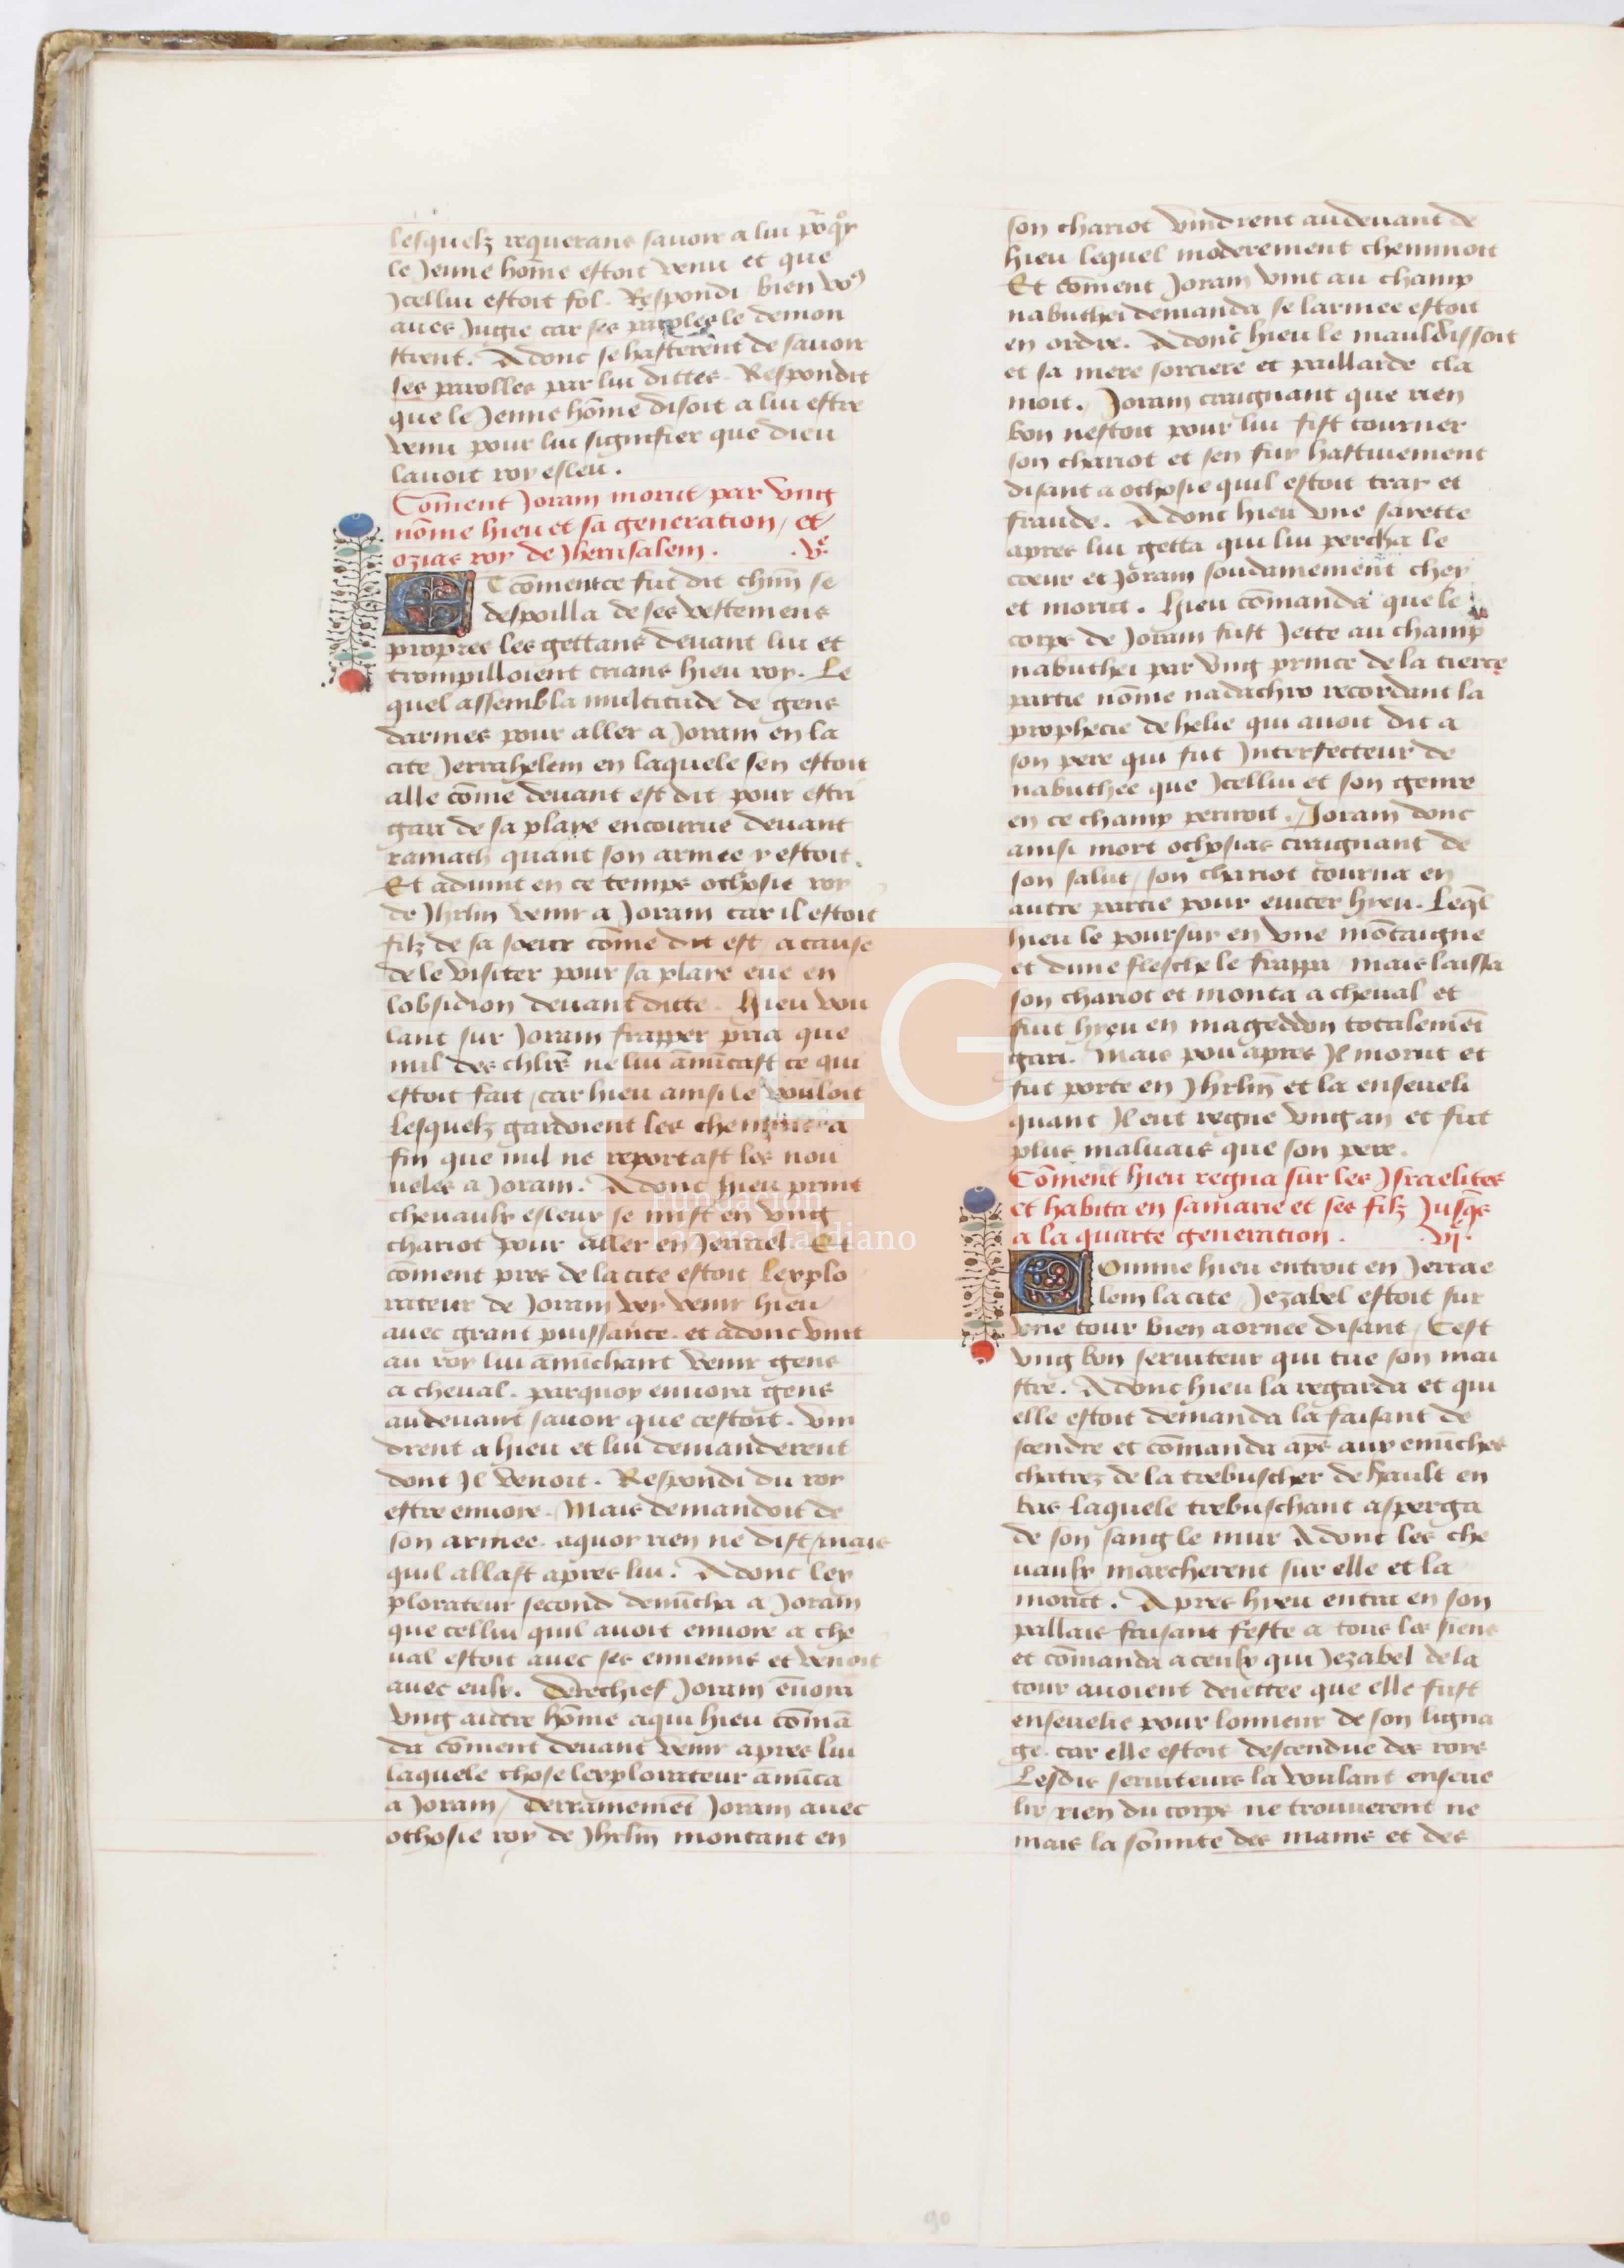 lesquelz requerans sauoir a lui po͛rqͦy
le Jenne hom̄e estoit venu et que
Jcellui estoit fol. Respondi bien voꝰ
aues Jugie car ses parolles le demon
strent. Adonc se hasterent de sauoir
ses parolles par lui dittes. Respondit
que le Jenne hom̄e disoit a lui estre
venu pour lui signifier que dieu
lauoit roy esleu.
Com̄ent Joram morut par vng
nom̄e hieu et sa generation / et
ozias roy de Jherusalem. .vͤ.
Et com̄entce fut dit chūn se
despoilla de ses vestemens
propres les gettans deuant lui et
trompilloient crians hieu roy. Le
quel assembla multitude de gens
darmes pour aller a Joram en la
cite Jerrahelem en laquele sen estoit
alle com̄e deuant est dit pour estre
gari de sa playe encourue deuant
ramath quant son armee y estoit.
Et aduint en ce temps othosie roy
de Jhrlm̄ venir a Joram car il estoit
filz de sa soeur com̄e dit est / a cause
de le visiter pour sa playe eue en
lobsidion deuant ditte. Hieu vou
lant sur Joram frapper pria que
nul des chlr̄s ne lui anūcast ce qui
estoit fait / car hieu ainsi le vouloit
Lesquelz gardoient les chemins a
fin que nul ne reportast les nou
ueles a Joram. Adonc hieu print
cheuaulx esleuz se mist en vng
chariot pour aller en Jerrael. Et
com̄ent pres de la cite estoit Lexplo
rateur de Joram vey venir hieu
auec grant puissance. et adonc vint
au roy lui anūchant venir gens
a cheual. parquoy enuoya gens
audeuant sauoir que cestoit. vin
drent a hieu et lui demanderent
dont Jl venoit. Respondi du roy
estre enuoye. Mais demandoit de
son armee. aquoy rien ne dist / mais
quil allast apres lui. Adonc lex
plorateur second denūcha a Joram
que cellui quil auoit enuoye a che
ual estoit auec ses ennemis et venoit
auec eulx. Derechief Joram enuoia
vng autre hom̄e aqui hieu com̄a
da com̄ent deuant venir apres lui
laquele chose lexplorateur anūca
a Joram / Derrainemēt Joram auec
othosie roy de Jhrlm̄ montant en
son chariot vindrent audeuant de
hieu lequel moderement cheminoit
Et com̄ent Joram vint au champ
nabuthei demanda se larmee estoit
en ordre. Adonc hieu le mauldissoit
et sa mere sorciere et paillarde cla
moit. Joram craignant que rien
bon nestoit pour lui fist tourner
son chariot et sen fuy hastiuement
disant a othosie quil estoit tray et
fraude. Adonc hieu vne sayette
apres lui getta qui lui percha le
coeur et Joram soudainement chey
et morut. Hieu com̄anda que le
corps de Joram fust Jette au champ
nabuthei par vng prince de la tierce
partie nom̄e nadachro recordant la
prophecie de helie qui auoit dit a
son pere qui fut Jnterfecteur de
nabuthee que Jcellui et son genre
en ce champ periroit. Joram donc
ainsi mort othosias craignant de
son salut / son chariot tourna en
autre partie pour euiter hieu. Leql̄
hieu le poursuy en vne mōtaigne
et dune flesche le frappa / mais laissa
son chariot et monta a cheual et
fuit hyeu en mageddon totalemēt
gari. Mais pou apres Jl morut et
fut porte en Jhrlm̄ et la enseueli
quant Jl eut regne vng an et fut
plus maluais que son pere.
Com̄ent hieu regna sur les Jsraelites
et habita en samarie et ses filz Jusq̄s
a la quarte generation. .vjͤ.
Comme hieu entroit en Jerrae
lem la cite Jezabel estoit sur
vne tour bien aornee disant / Cest
vng bon seruiteur qui tue son mai
stre. Adonc hieu la regarda et qui
elle estoit demanda la faisant de
scendre et com̄anda ap̄s aux enūches
chatrez de la trebuscher de hault en
bas laquele trebuschant asperga
de son sang le mur Adont les che
uaulx marcherent sur elle et la
morut. Apres hyeu entra en son
pallais faisant feste a tous les siens
et com̄anda a ceulx qui Jezabel de la
tour auoient deiettee que elle fust
enseuelie pour lonneur de son ligna
ge. car elle estoit descendue des roys
Lesdis seruiteurs la voulant enseue
lir rien du corps ne trouuerent ne
mais la som̄ite des mains et des
90
LG
Fundación
Lázaro Galdiano